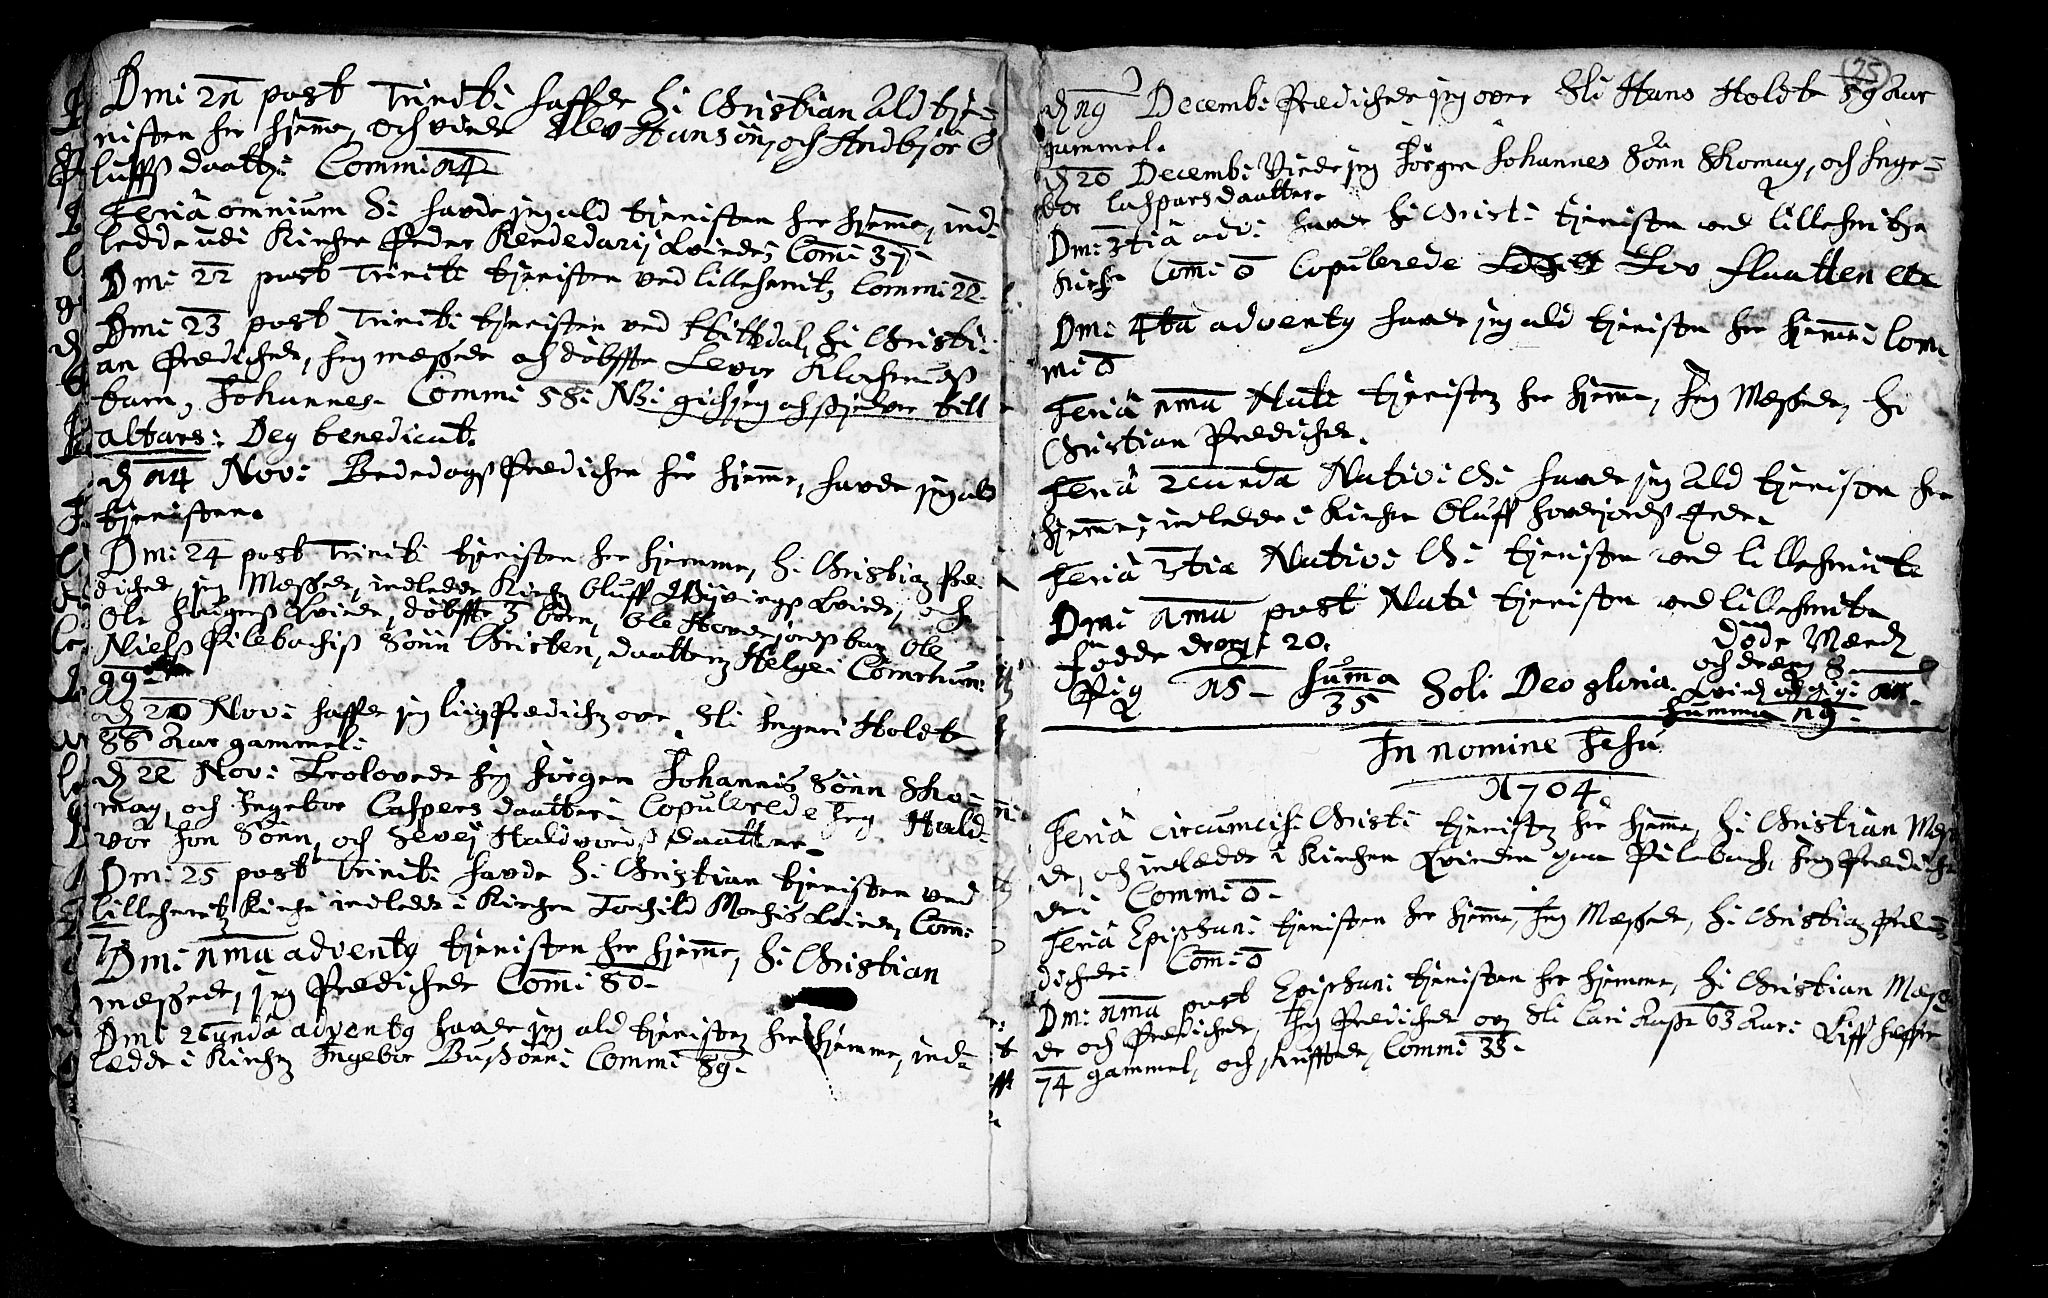 Dmi 21 post Trinit: haffde H: Christian Ald tje-
nisten her hjemme, och viede Olev Hansøn, och Andbjør O
luffs daatter: Commi: 14
Feriâ omnium S: hafde jeg ald tjenisten her hjemme, ind-
ledde udi Kircken Peder Qvinde, Comi: 37.
Dmi 22 post Trinit: tjenisten ved lilleherrit, Commi: 22.
Dmi 23 post Trinit: tjenisten ved Hittdal, H: Christi-
an Prædichede, jeg messede och døbfte Levor
barn, Johannes. Commi: 58: NB: gich jeg och till
altars: Deg benedicat.
d 14 Nov: Bededags Prædichen her hjemme, hafde jeg ald
tjenisten.
Dmi: 24 post Trinit: tjenisten her hjemme, H: Christian Præ-
dichede, jeg Messede, indledde i Kirchen Oluff Qvinde, och
Ole Qvinde, døbfte 3 børn, Ole barn Ole
Niels Pilebachs Sønn Christen, daatteren Helge: Commun:
99
d 20 Nov: haffde jeg ligprædichen over Sl: Ingeri Holdte
88 Aar gammel:
d 22 Nov: Trolovede jeg Jørgen Johannis Sønn Sko-
mag, och Ingebor Caspers daatter: Copulerede Jeg Hald-
vor Jon Sønn, och Sevej Haldvords daatter.
Dmi: 25 post Trinit: hafde H: Christian tjenisten ved
lilleherrit Kirche indledde i Kirchen Torchild Moches Qvinde, Com:
7.
Dmi: 1ma adventg tjenisten her hjemme, H: Christian
messede, jeg Prædichede Comi: 80.
Dmi 2cunda adventg hafde jeg ald tjenisten her hjemme, ind-
ledde i Kirchen Ingebor Bussønn: Commi: 89.
(25)
d 19 Decemb: Prædichede jeg over Sl: Hans Holdte 59 Aar
gammel.
d 20 Decemb: Viede jeg Jørgen Johannes Sønn Skomag, och Inge-
bor Caspersdaatter.
Dmi: 3tia adv: hafde H: Christ: tjenisten ved lilleherritz
Kirche Comi: 0 Copulerede Lov Flaatten etc
Dmi 4ta adventg hafde jeg ald tjenisten her hjemme: Com-
mi 0
Feriâ 1ma Nati: tjenisten her hjemme, Jeg Messede, H:
Christian Prædichede.
Feriâ 2cunda Nativi: Chr: hafde jeg Ald tjenisten her
hjemme, indledde i Kirchen Oluff
Feriâ 3tia Nativi: Chr: tjenisten ved lilleherritz
Dmi 1ma post Nati: tjenisten ved lilleherritz
Fødde dreng: 20. døde Mænd
och dreng 8
Pig 15 Summa Soli Deo gloria. Qvind och pigi 11.
35 Summa 19.
In nomine Jesu
1704
Feriâ circumcis: Christi tjenisten her hjemme, H: Christian Messe-
de, och indledde i Kirchen Qvinden paa Pilebach, Jeg Prædiche-
de: Commi: 0.
Feriâ Epiphani: tjenisten her hjemme, Jeg Messede, H: Christian Præ-
dichede: Comi: 0
Dmi: 1ma post Epiphani: tjenisten her hjemme, H: Christian Messe-
de och Prædichede, Jeg Prædichede over Sl: Cari 63 Aar:
74 gammel, och skrifftede, Commi: 33.